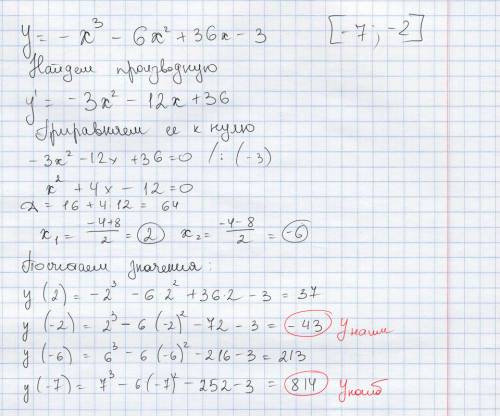 y = - x³ - 6x² + 36x - 3 [-7; -2]
Найдем производную
y' = -3x² - 12x + 36
Приравняем ее к нулю
-3x² - 12x + 36 = 0 /: (-3)
x² + 4x - 12 = 0
D = 16 + 4·12 = 64
x₁ = (-4+8)/2 = 2 x₂ = (-4-8)/2 = -6
Посчитаем значения:
y(2) = -2³ - 6·2² + 36·2 - 3 = 37
y(-2) = 2³ - 6(-2)² - 72 - 3 = -43 yнаим
y(-6) = 6³ - 6(-6)² - 216 - 3 = 213
y(-7) = 7³ - 6(-7)² - 252 - 3 = 814 yнаиб